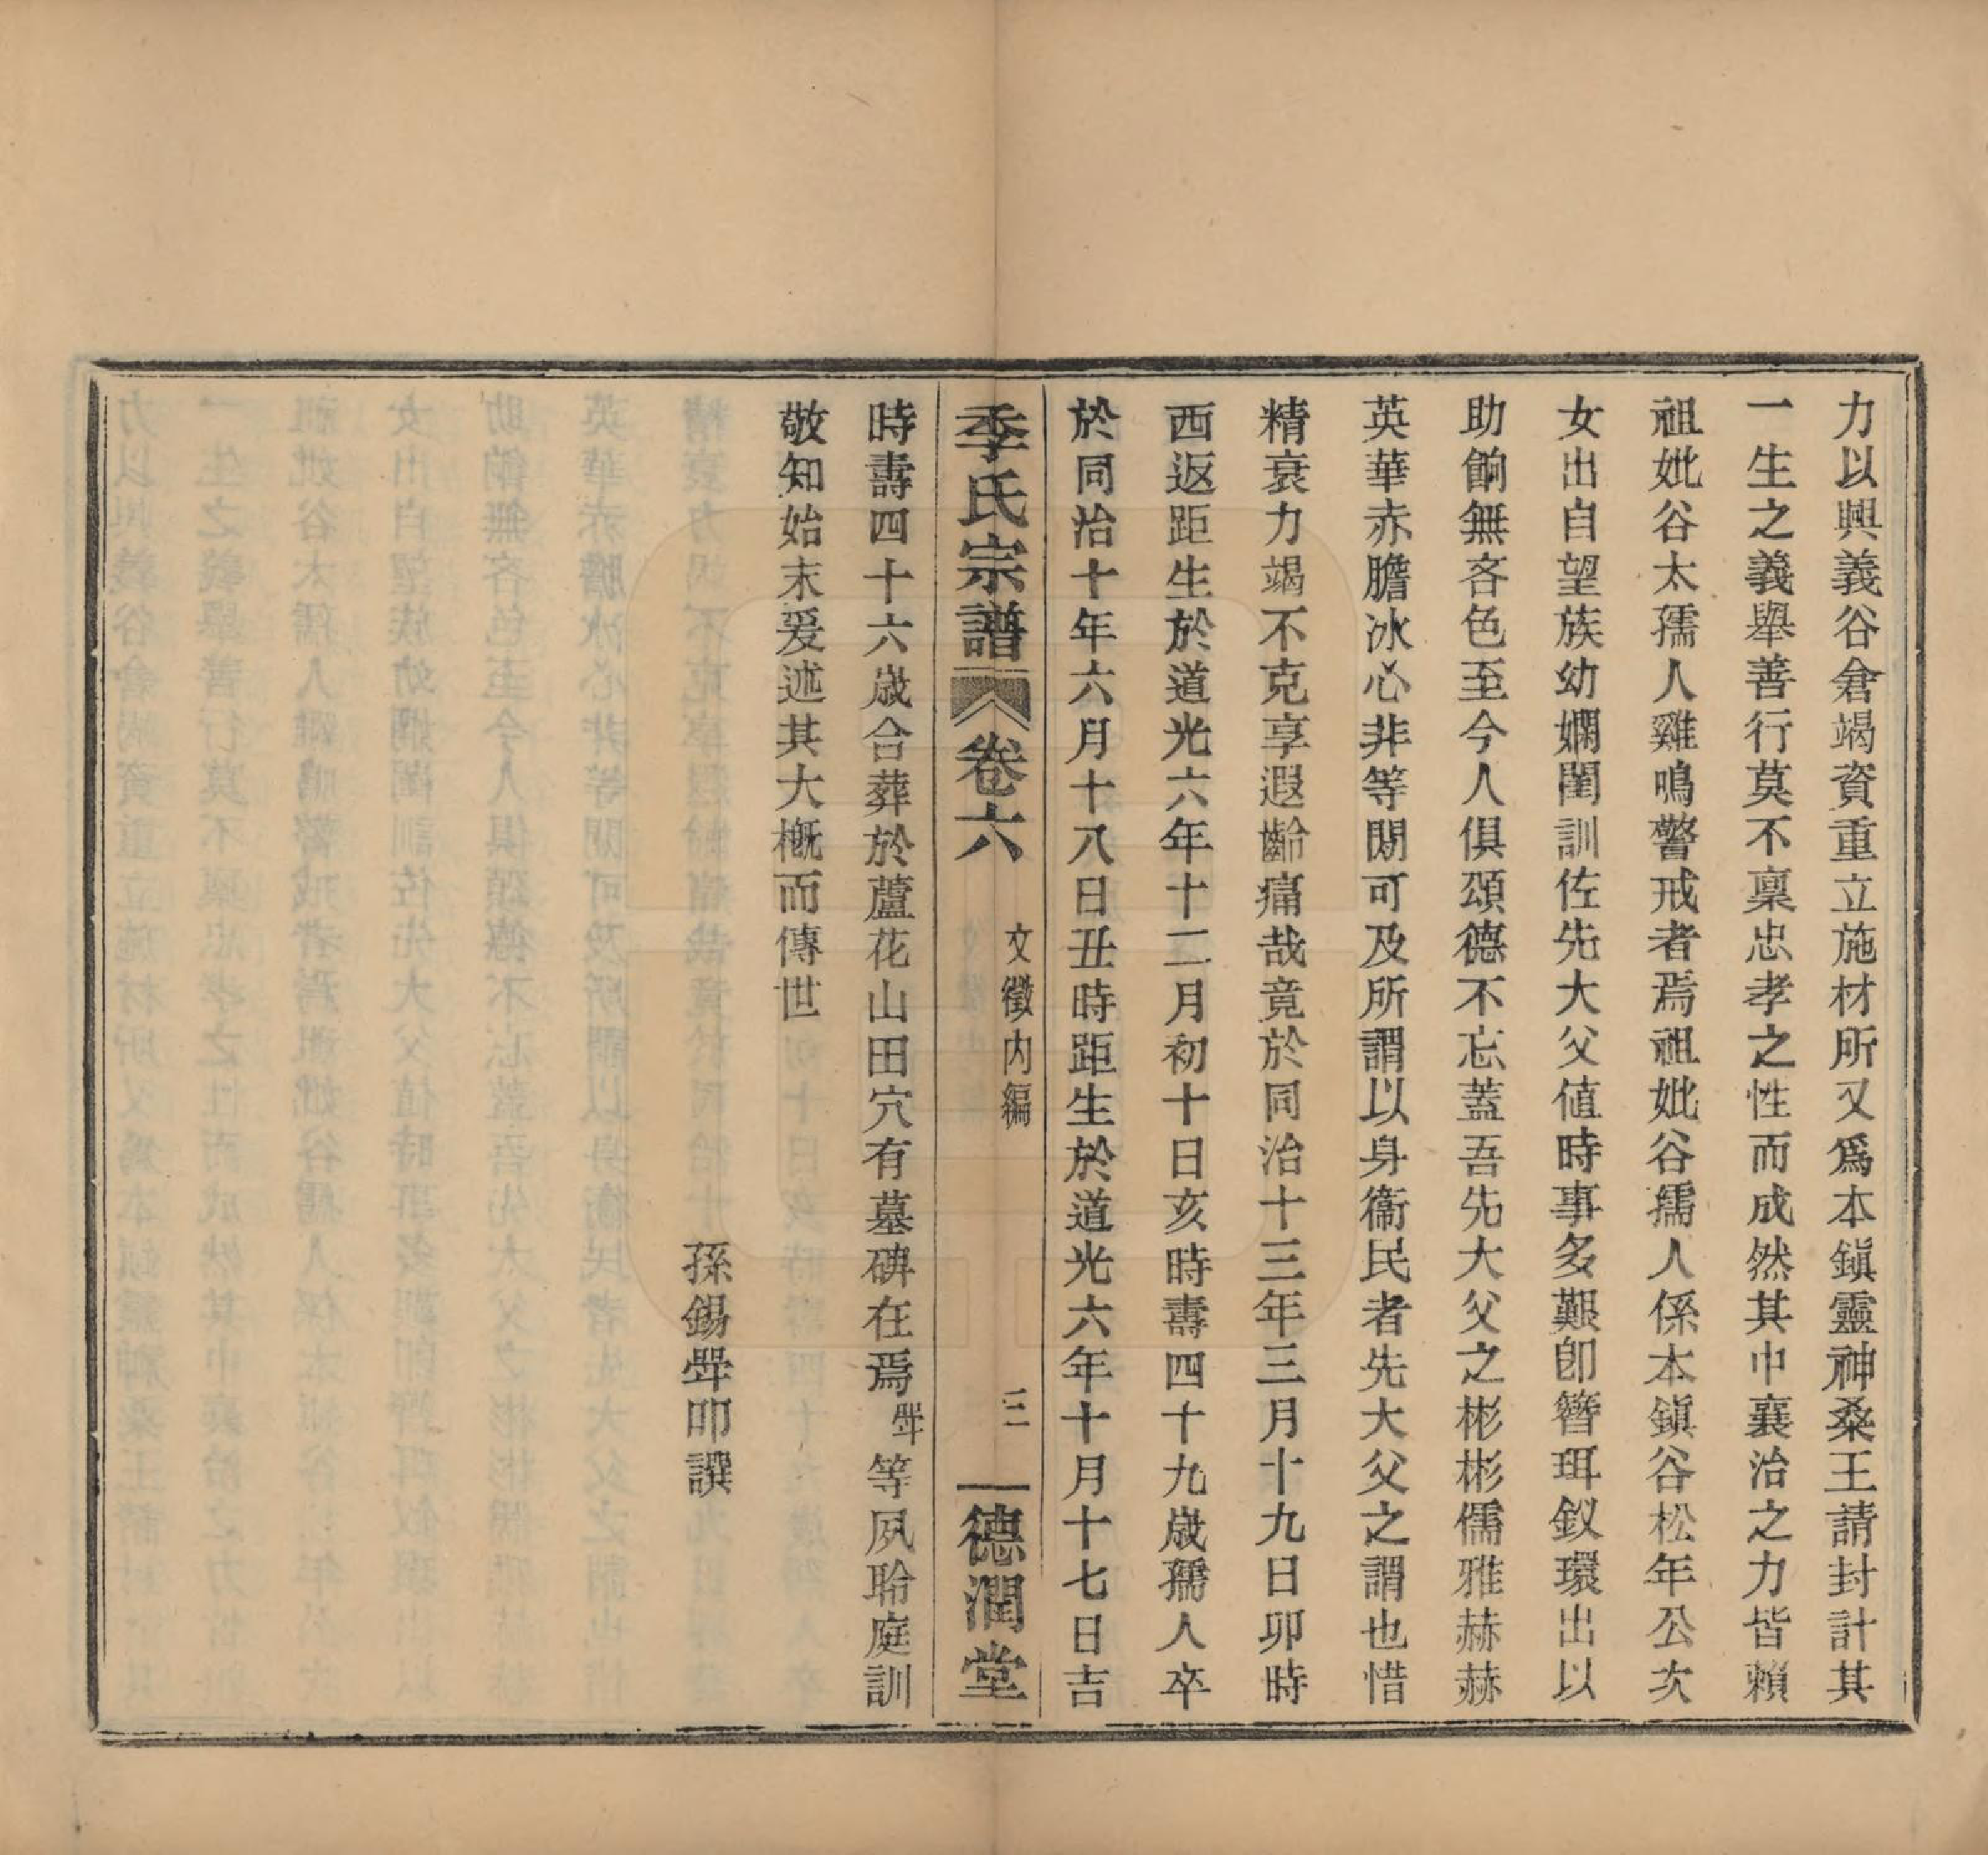 力以興義谷倉竭資重立施材所又爲本鎭靈神桑王請封計其
一生之義舉善行莫不稟忠孝之性而成然其中襄治之力皆賴
祖妣谷太孺人雞鳴警戒者焉祖妣谷孺人係本鎭谷松年公次
女出自望族幼嫻閨訓佐先大父値時事多艱卽簪珥釵環出以
助餉無吝色至今人俱頌德不忘蓋吾先大父之彬彬儒雅赫赫
英華赤膽冰心非等閒可及所謂以身衞民者先大父之謂也惜
精衰力竭不克享遐齡痛哉竟於同治十三年三月十九日卯時
西返距生於道光六年十二月初十日亥時壽四十九歲孺人卒
於同治十年六月十八日丑時距生於道光六年十月十七日吉
季氏宗譜 卷六 文徵內編 三 德潤堂
時壽四十六歲合葬於蘆花山田穴有墓碑在焉聲等夙聆庭訓
敬知始末爰述其大槪而傳世
孫錫聲叩譔